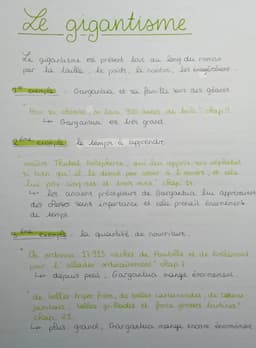 Le gigantisme
Le gigantisme est présent tout au long du roman
par la taille, le poids, le nombre,
1er exemple : Gargantua et sa famille sont des géants
"Pour sa chemise, on leva 900 aunes de toile" chap 8
↳ Gargantua est très grand.
2ème exemple : le temps à apprendre
maître Thubal Holopherne, qui lui apprit son alphabet
si bien qu'il le disait par cœur à l'envers, et cela
lui prit cinq ans et trois mois" chap 14
↳ les anciens précepteurs de Gargantua lui apprenaient
des choses sans importance et cela prenait énormément
de temps
exemple : la quantité de nourriture.
On ordonna 17 913 vaches de Pontille et de Bréhémont
pour l'allaiter ordinairement" chap 7
↳ depuis petit, Gargantua mange énormément
"de belles tripes frites, de belles carbonnades, de
jambons, belles grillades et force grosses tartines"
chap. 21
↳ plus grand, Gargantua mange encore énormément